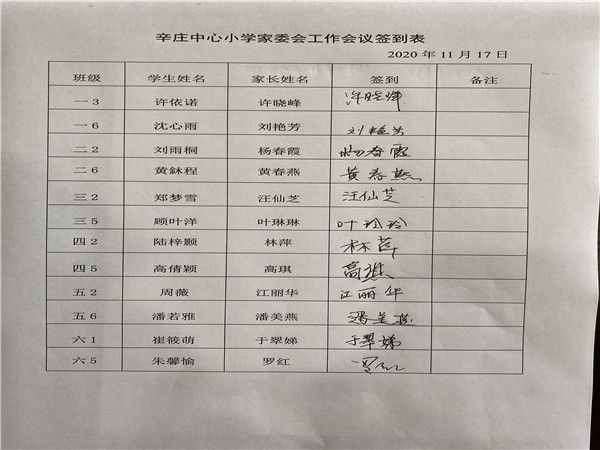 辛庄中心小学家委会工作会议签到表
2020 年 11 月 17 日
班级 学生姓名 家长姓名 签到 备注
一 3 许依诺 许晓峰 许晓峰
一 6 沈心雨 刘艳芳 刘艳芳
二 2 刘雨桐 杨春霞 杨春霞
二 6 黄鉥程 黄春燕 黄春燕
三 2 郑梦雪 汪仙芝 汪仙芝
三 5 顾叶洋 叶琳琳 叶玲玲
四 2 陆梓颢 林萍 林萍
四 5 高倩颖 高琪 高琪
五 2 周薇 江丽华 江丽华
五 6 潘若雅 潘美燕 潘美燕
六 1 崔筱萌 于翠娣 于翠娣
六 5 朱馨愉 罗红 罗红